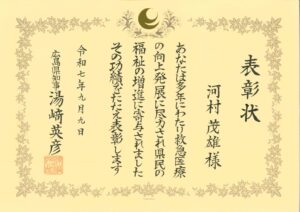 表彰状
河村茂雄様
あなたは多年にわたり救急医療
の向上発展に尽力され県民の
福祉の増進に寄与されました
その功績をたたえ表彰します
令和七年九月九日
広島県知事 湯﨑英彦